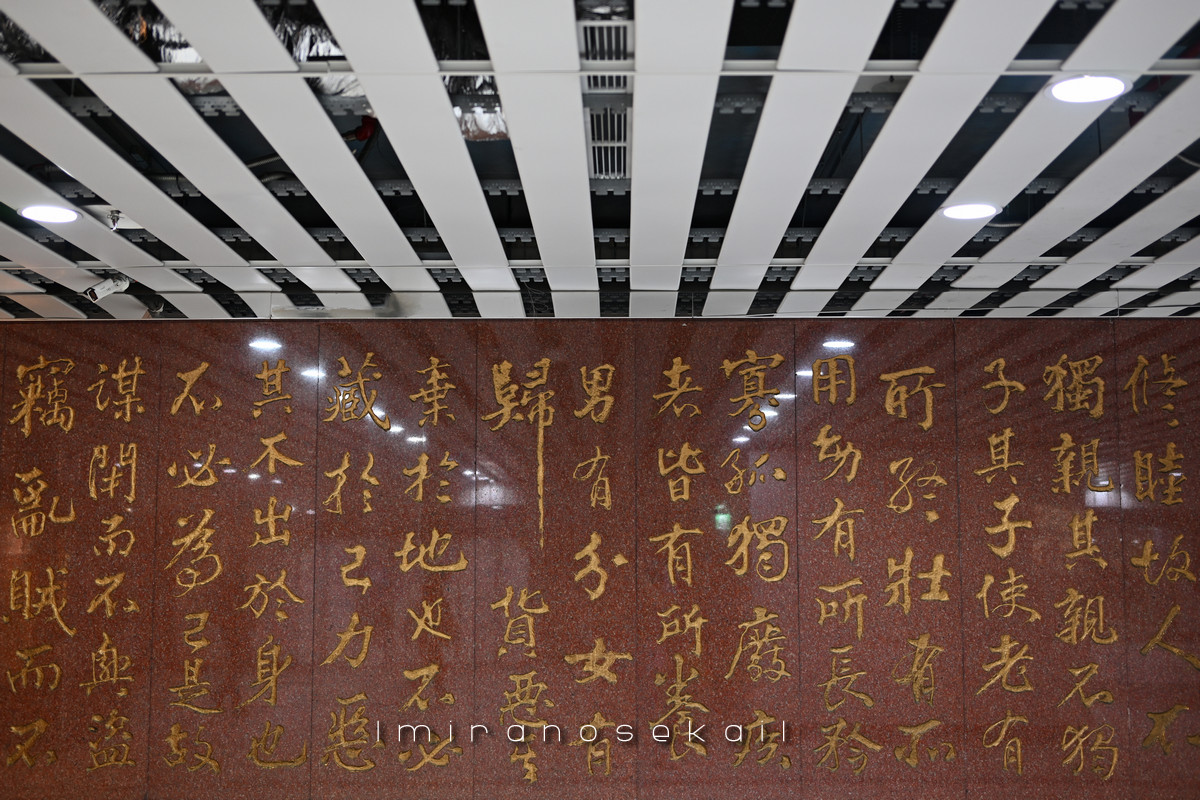 修睦故人不
獨親其親不獨
子其子使老有
所終壯有所
用幼有所長矜
寡孤獨廢疾
者皆有所養
男有分女有
歸貨惡其
棄於地也不必
藏於己力惡
其不出於身也
不必為己是故
謀閉而不興盜
竊亂賊而不
|miranosekai|